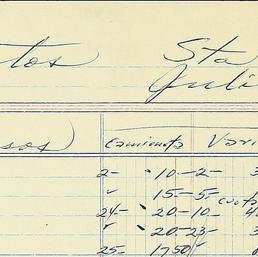 tos Sta
Juli
sos Camioneta Vari
2- 10-2- 3
" 15-5-
24- 20-10- 4
" 20-23- 3
25- 1750 "